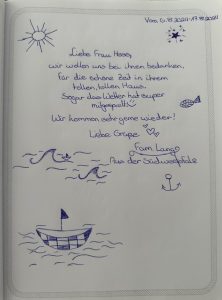 Vom 10.08.2024-17.08.2024
Liebe Frau Hess,
wir wollen uns bei ihnen bedanken,
Für die schöne Zeit in ihrem
tollen, tollen Haus.
Sogar das Wetter hat super
mitgespielt
Wir kommen sehr gerne wieder!
Liebe Grüße
Fam Lang
Aus der Südwestpfalz